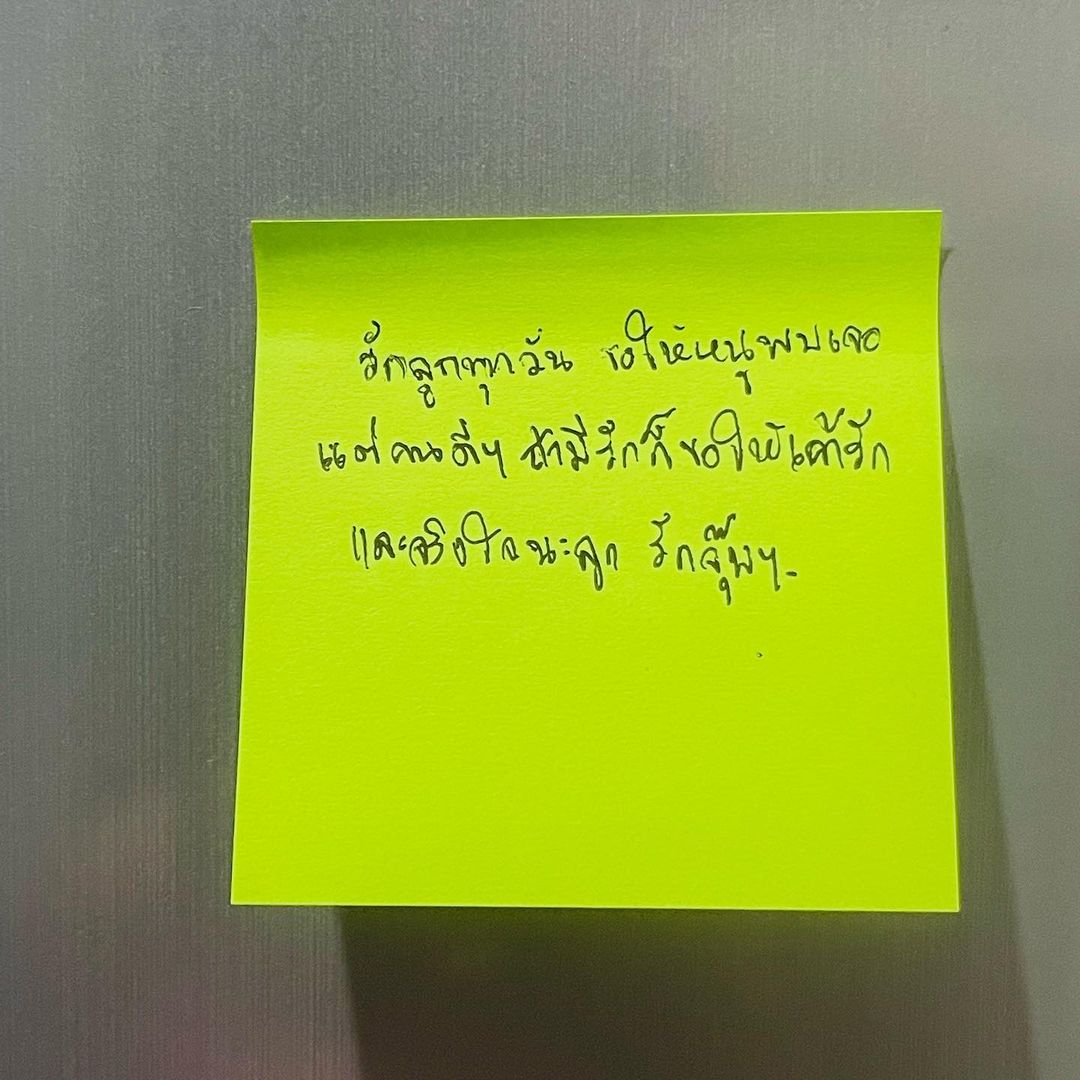 รักลูกทุกวัน ขอให้หนูพบเจอ
แต่คนดีๆ ถ้ามีรักก็ขอให้เค้ารัก
และจริงใจนะลูก รักจุ๊บๆ